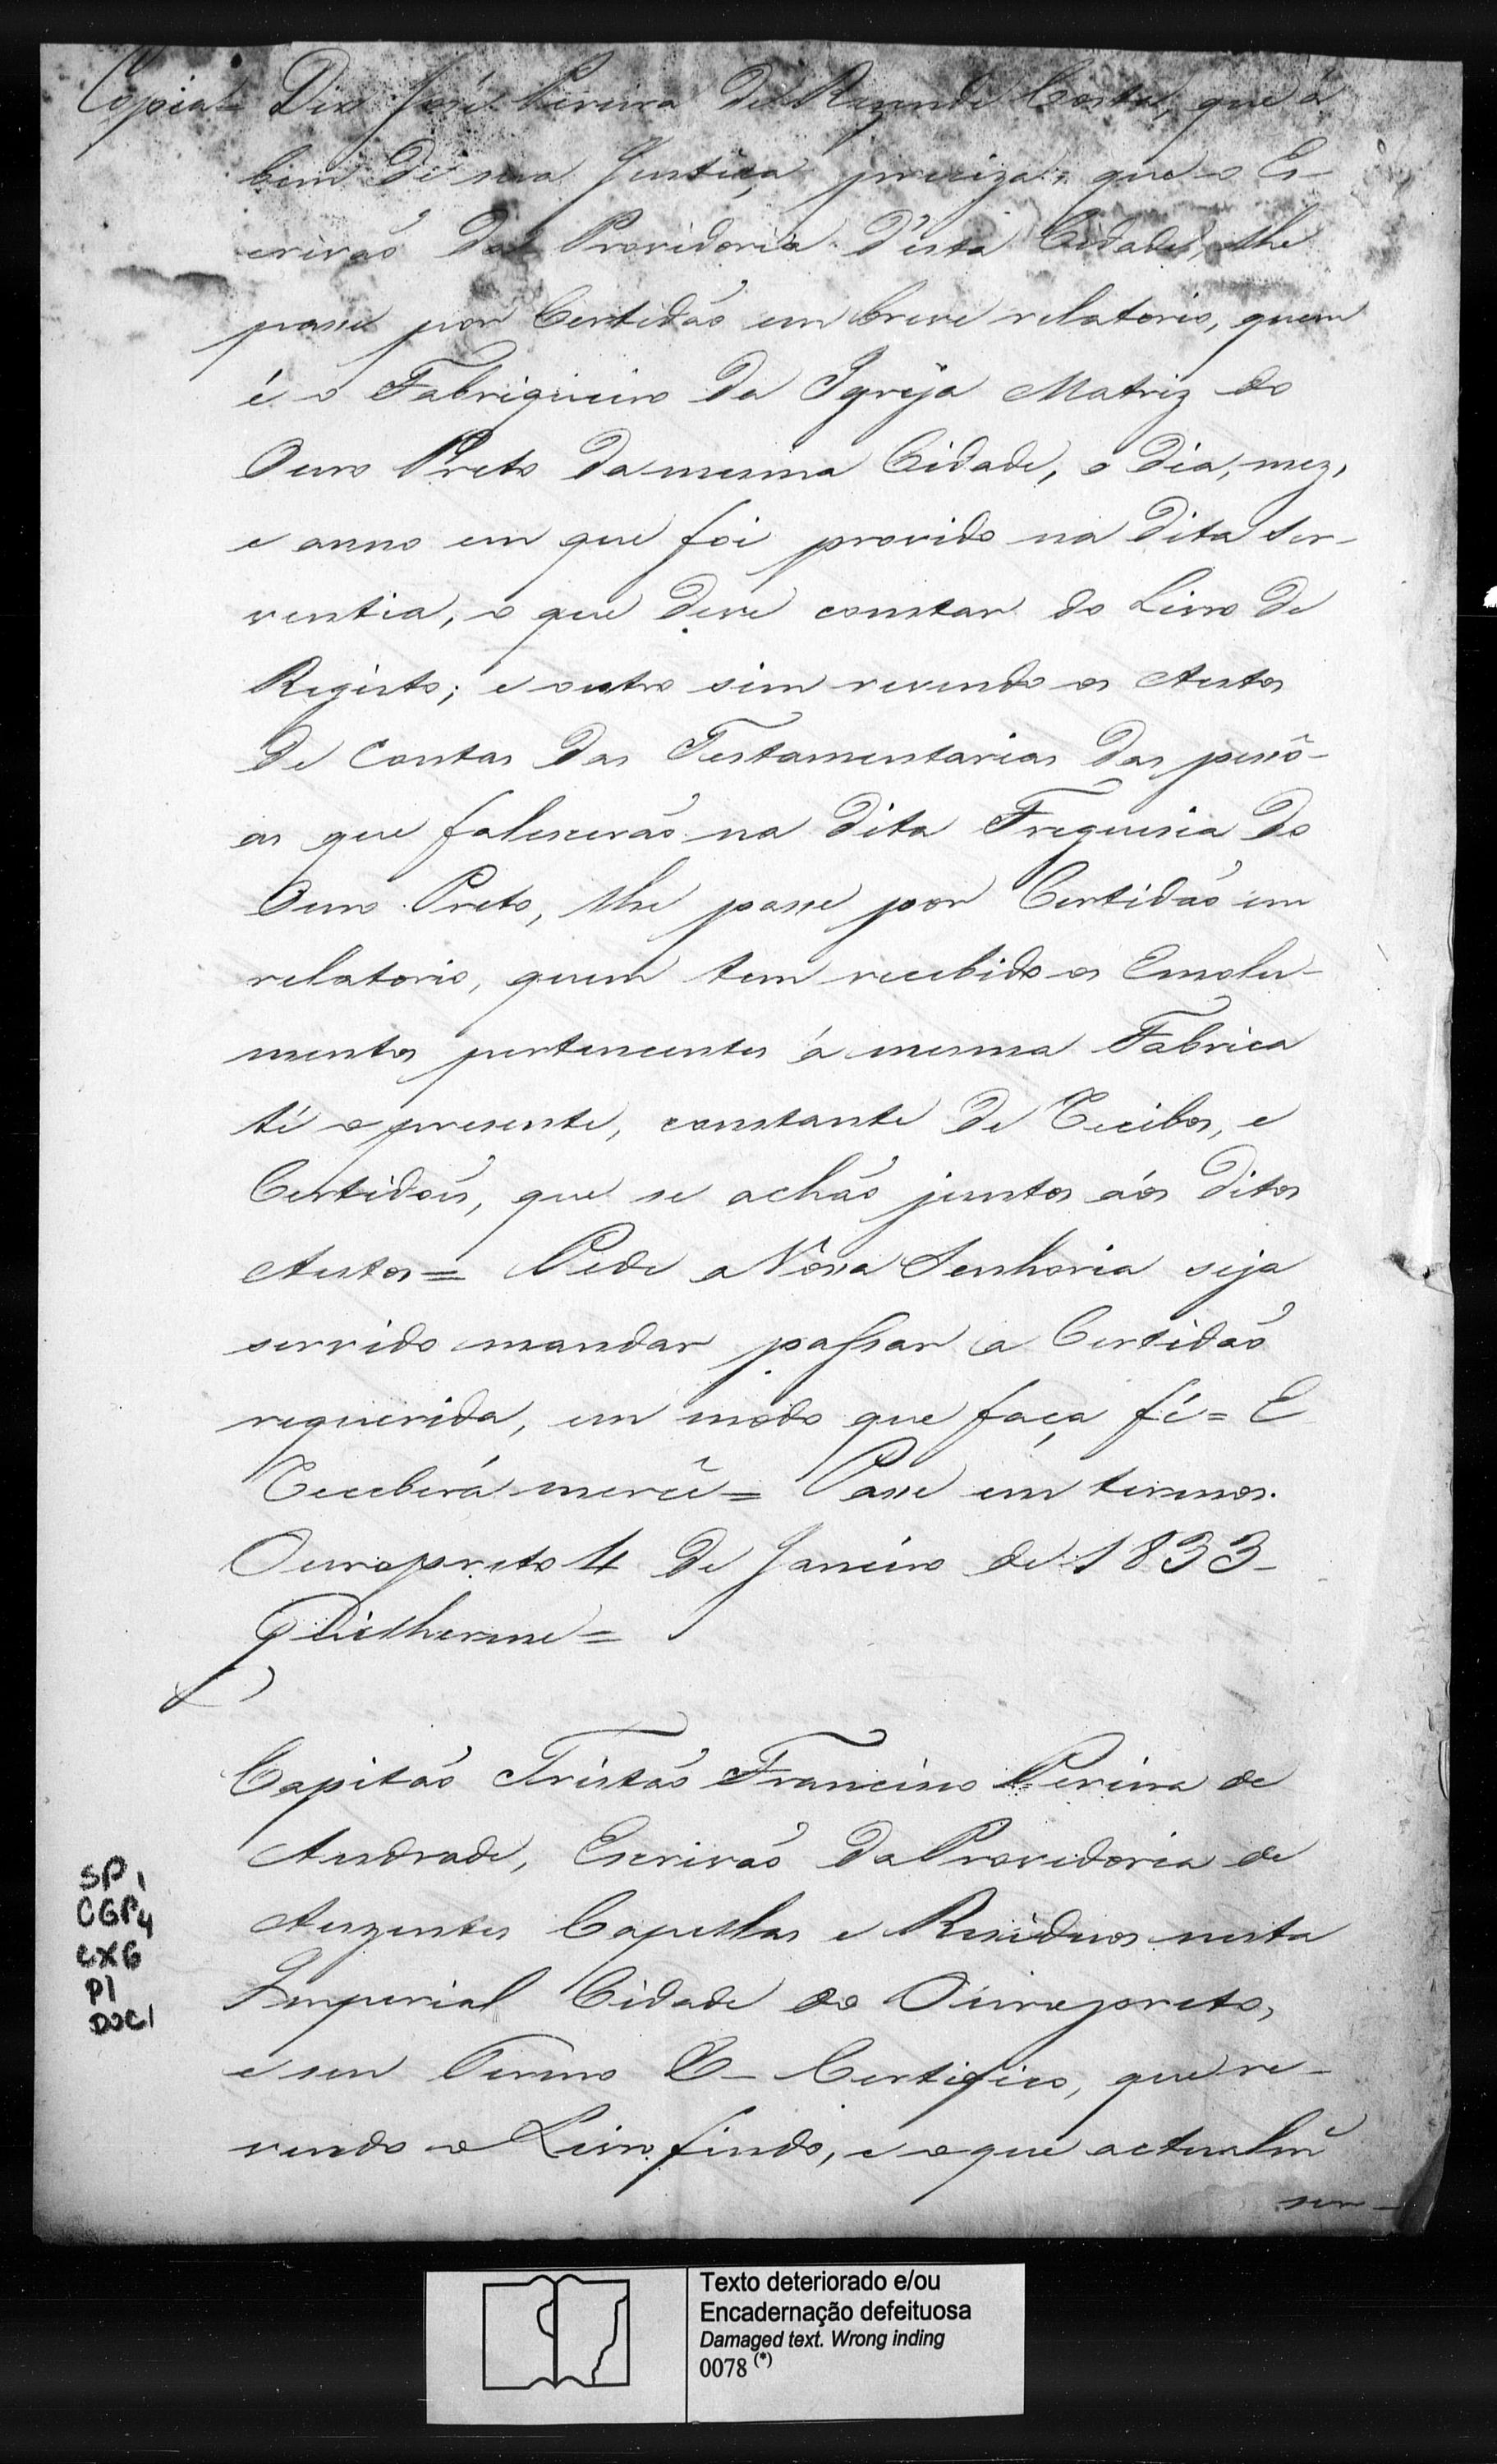 Copia= Diz José Pereira de Rezende Costa, que á
bem de sua Justiça preciza, que o Es-
crivaõ da Provedoria d'esta Cidade, lhe
passe por Certidaõ em breve relatorio, quem
é o Fabriqueiro da Igreja Matriz do
Ouro Preto da mesma Cidade, o dia, mez,
e anno em que foi provido na dita Ser-
ventia, o que deve constar do Livro de
Registo; e outro sim revendo os Autos
de Contas das Testamentarias das pessô-
as que faleceraõ na dita Freguesia do
Ouro Preto, lhe passe por Certidaõ em
relatorio, quem tem recebido os Emolu-
mentos pertencentes á mesma Fabrica
té o presente, constante de Recibos, e
Certidoẽs, que se achaõ juntos áos ditos
Autos= Pede a Vossa Senhoria seja
servido mandar passar a Certidaõ
requerida, em modo que faça fé= E
Receberá mercê= Passe em termos.
Ouropreto 4 de Janeiro de 1833-
Guilherme=
Capitaõ Tristaõ Francisco Pereira de
Andrade, Escrivaõ da Provedoria de
Auzentes Capellas e Residuos nesta
Imperial Cidade do Ouropreto,
e seu Termo &- Certifico, que re-
vendo o Livro findo, e o que actualm̃
ser-
SP1
CGP4
CX6
P1
DOC1
Texto deteriorado e/ou
Encadernação defeituosa
Damaged text. Wrong inding
0078 (*)